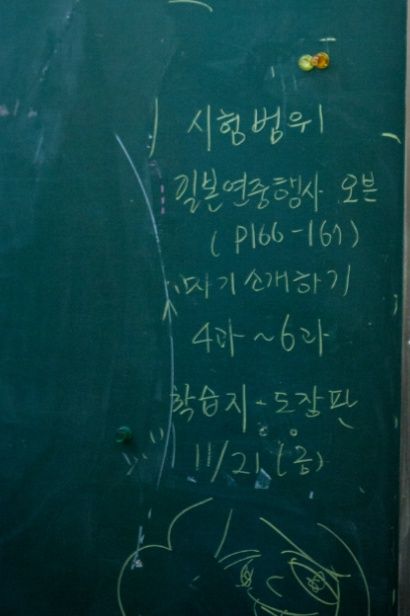 시험범위
일본연중행사 오픈
(P166-167)
자기소개하기
4과~6과
학습지·도장판
11/21(금)